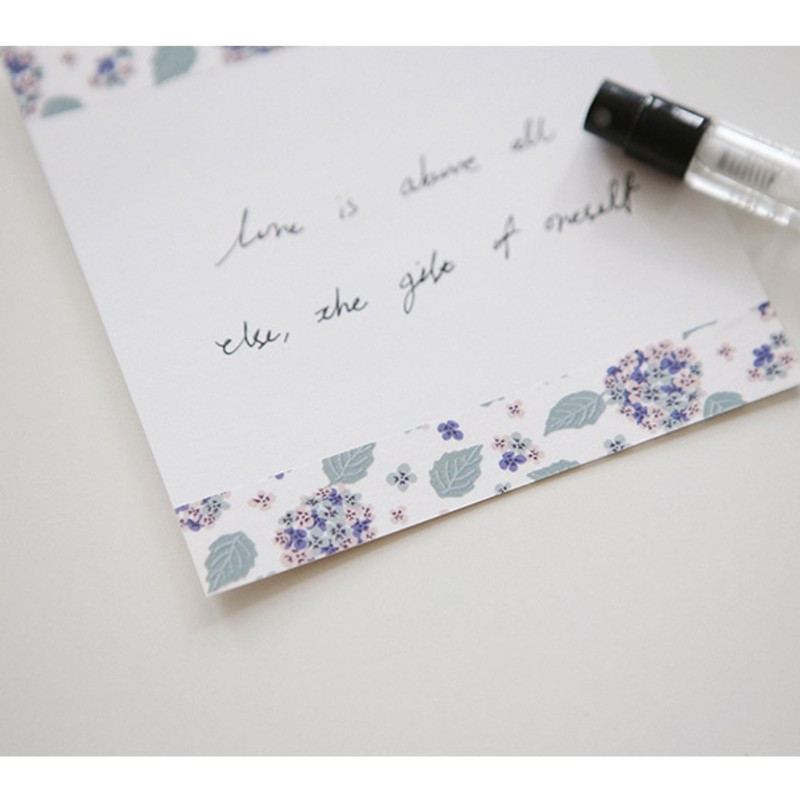 Love is above all
else, the gift of oneself